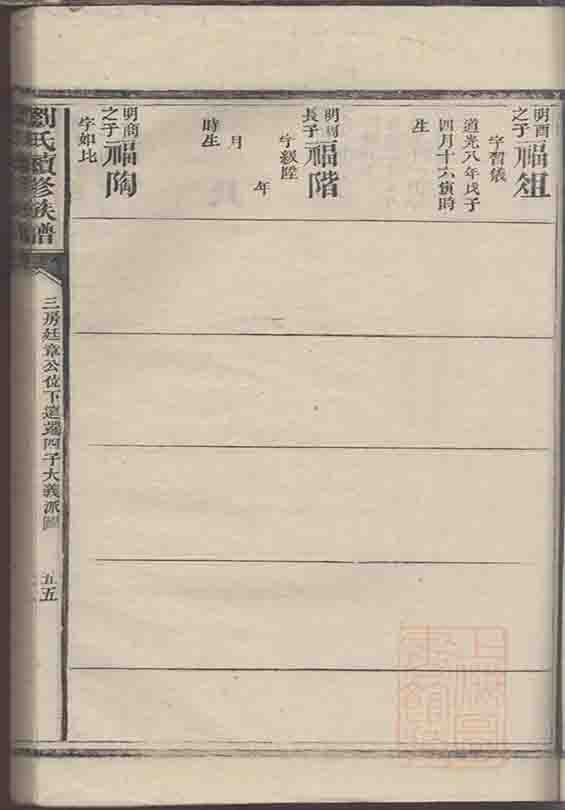 明酉
之子
福俎
字習儀
道光八年戊子
四月十六寅時
生
明周
長子
福階
字級陞
年
月
時生
明商
之子
福陶
字如比
劉氏續修族譜
三房廷章公位下道端四子大義派圖
五五